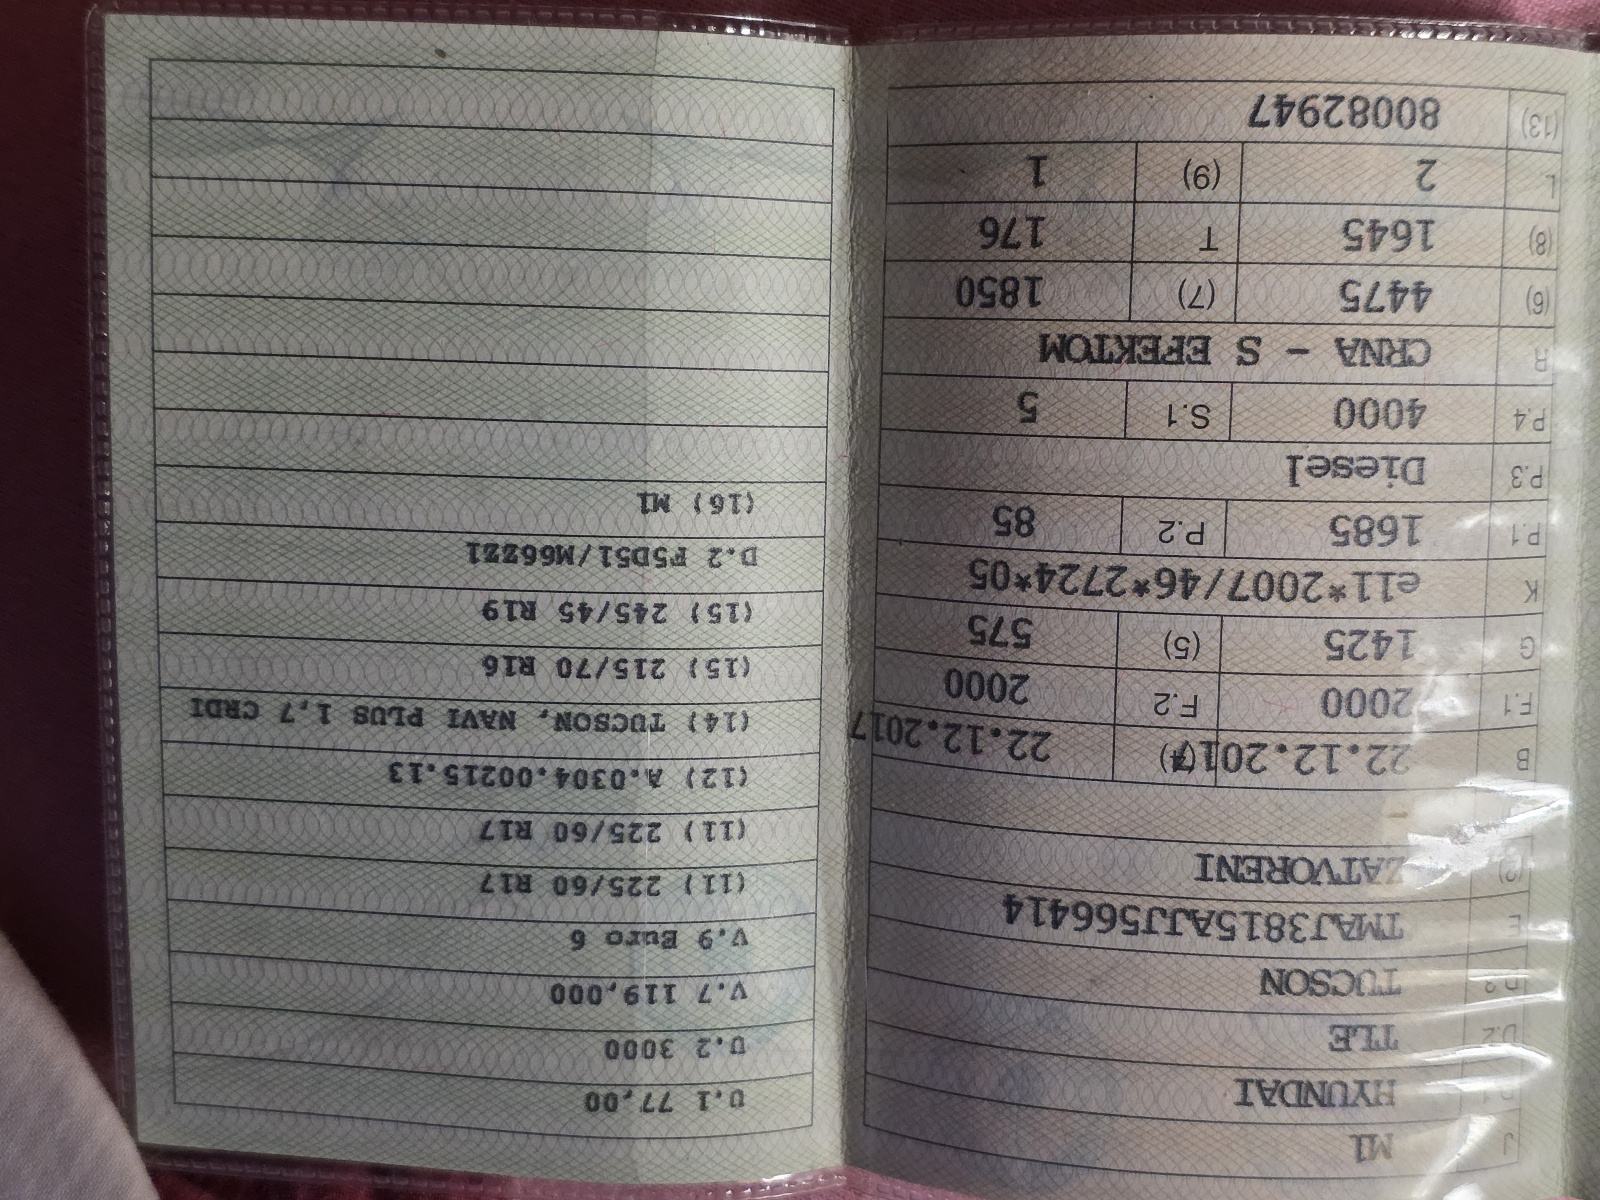 J M1
D.1 HYUNDAI
D.2 TLE
D.3 TUCSON
E TMAJ3815AJJ566414
ZATVORENI
-
B 22.12.2017 (4) 22.12.2017
F.1 2000 F.2 2000
G 1425 (5) 575
K e11*2007/46*2724*05
P.1 1685 P.2 85
P.3 Diesel
P.4 4000 S.1 5
R CRNA - S EFEKTOM
(6) 4475 (7) 1850
(8) 1645 T 176
L 2 (9) 1
(13) 80082947
U.1 77,00
U.2 3000
V.7 119,000
V.9 Euro 6
(11) 225/60 R17
(11) 225/60 R17
(12) A.0304.00215.13
(14) TUCSON, NAVI PLUS 1,7 CRDI
(15) 215/70 R16
(15) 245/45 R19
D.2 F5D51/M66ZZ1
(16) M1